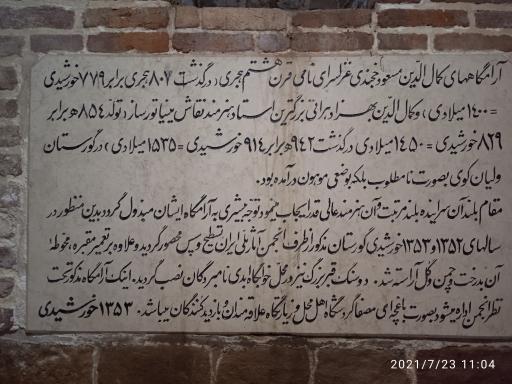 آرامگاههای کمال الدین مسعود خجندی غزلسرای نامی قرن هشتم هجری (درگذشت ۸۰۳ هجری برابر ۷۷۹ خورشیدی
= ۱۴۰۰ میلادی) و کمال الدین بهزاد هراتی بزرگترین استاد هنرمند نقاش مینیاتورساز (تولد ۸۵۴ ه برابر
۸۲۹ خورشیدی = ۱۴۵۰ میلادی درگذشت ۹۴۲ ه برابر ۹۱۴ خورشیدی = ۱۵۳۵ میلادی) در گورستان
ولیان کوی بصورت نامطلوب بلکه بوضعی موهون درآمده بود.
مقام بلند آن سراینده بلند مرتبت و آن هنرمند عالی قدر ایجاب مینمود توجه بیشتری به آرامگاه ایشان مبذول گردد بدین منظور در
سالهای ۱۳۵۲ و ۱۳۵۳ خورشیدی گورستان مذکور از طرف انجمن آثار ملی ایران تسطیح و سپس محصور گردید و علاوه بر تعمیر مقبره، محوطهٔ
آن بدرخت و چمن و گل آراسته شد. دو سنگ قبر بزرگ نیز در محل خوابگاه ابدی نامبردگان نصب گردید. اینک آرامگاه مذکور تحت
نظر انجمن اداره میشود بصورت باغچه ای مصفا گردشگاه اهل محل و زیارتگاه علاقمندان و بازدید کنندگان میباشد. ۱۳۵۳ خورشیدی
2021/7/23 11:04